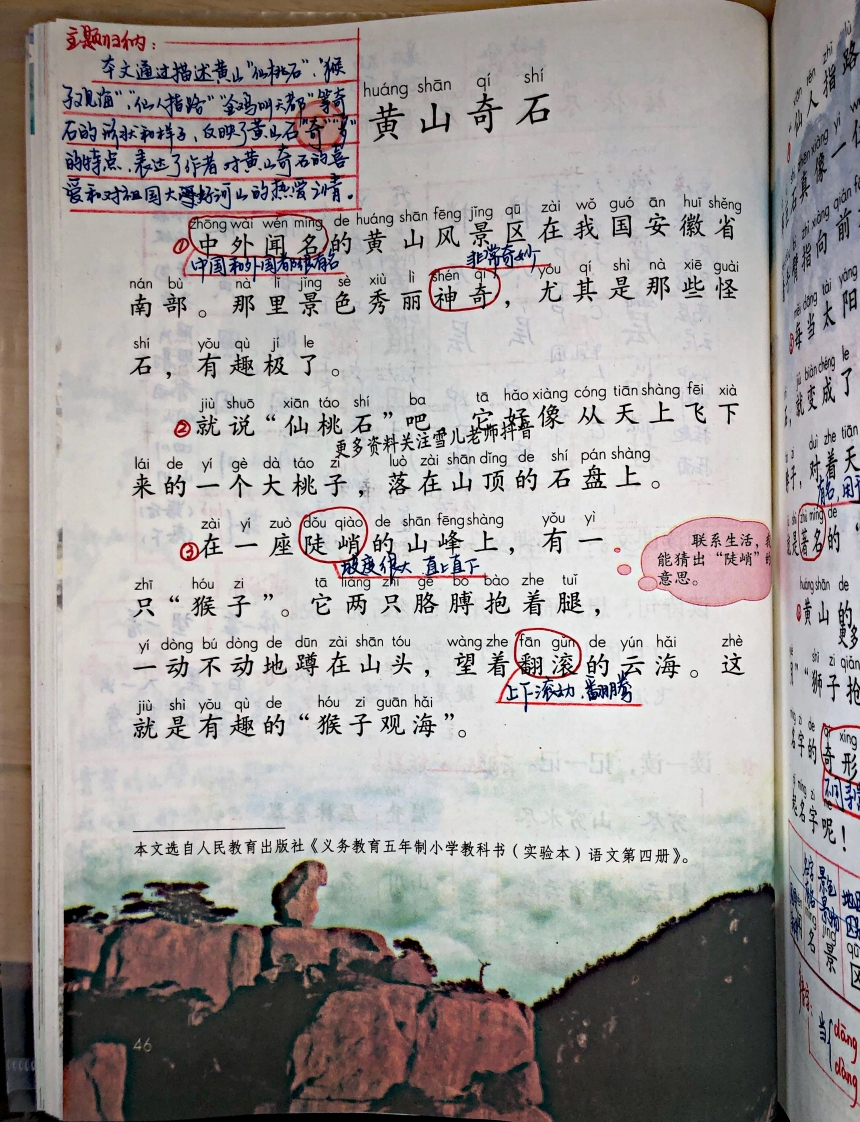 主题归纳：
本文通过描述黄山“仙桃石”、“猴
子观海”、“仙人指路”“金鸡叫天都”等奇
石的形状和样子，反映了黄山石“奇”“多”
的特点，表达了作者对黄山奇石的喜
爱和对祖国大好河山的热爱之情。
huáng shān qí shí
黄山奇石
zhōng wài wén míng de huáng shān fēng jǐng qū zài wǒ guó ān huī shěng
①中外闻名的黄山风景区在我国安徽省
中国和外国都很有名
非常奇妙
nán bù nà lǐ jǐng sè xiù lì shén qí yóu qí shì nà xiē guài
南部。那里景色秀丽神奇，尤其是那些怪
shí yǒu qù jí le
石，有趣极了。
jiù shuō xiān táo shí ba tā hǎo xiàng cóng tiān shàng fēi xià
②就说“仙桃石”吧，它好像从天上飞下
更多资料关注雪儿老师抖音
lái de yí gè dà táo zi luò zài shān dǐng de shí pán shàng
来的一个大桃子，落在山顶的石盘上。
zài yí zuò dǒu qiào de shān fēng shàng yǒu yì
③在一座陡峭的山峰上，有一
坡度很大，直上直下
联系生活，我
能猜出“陡峭”的
意思。
zhī hóu zi tā liǎng zhī gē bo bào zhe tuǐ
只“猴子”。它两只胳膊抱着腿，
yí dòng bú dòng de dūn zài shān tóu wàng zhe fān gǔn de yún hǎi zhè
一动不动地蹲在山头，望着翻滚的云海。这
上下滚动，翻腾
jiù shì yǒu qù de hóu zi guān hǎi
就是有趣的“猴子观海”。
本文选自人民教育出版社《义务教育五年制小学教科书（实验本）语文第四册》。
46
仙人指路
石真像一位
臂指向前
每当太阳
biàn chéng le
就变成了
duì zhe tiān
，对着天
zhù míng de
是著名的“
huáng shān de
黄山的
shī zi qiǎng
“狮子抢
名字的奇形
起名字呢！
当{dāng
dàng